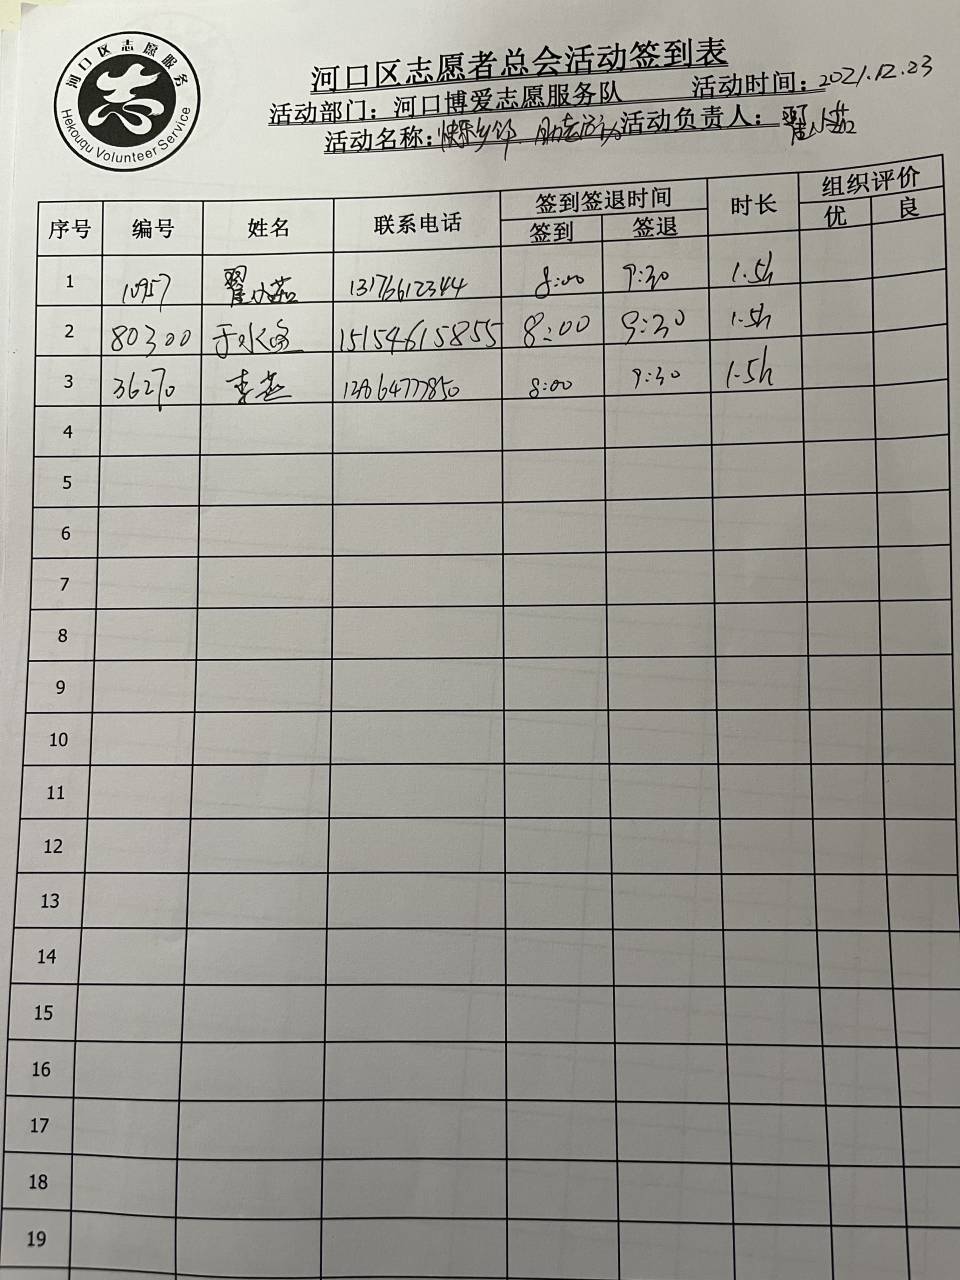 河口区志愿服务
Hekouqu Volunteer Service
河口区志愿者总会活动签到表
活动部门：河口博爱志愿服务队 活动时间：2021.12.23
活动名称： 活动负责人：翟小茹
序号 编号 姓名 联系电话 签到签退时间 时长 组织评价
签到 签退 优 良
1 10957 翟小茹 13176612344 8:00 9:30 1.5h
2 80300 15154615855 8:00 9:30 1.5h
3 36270 李燕 8:00 9:30 1.5h
4
5
6
7
8
9
10
11
12
13
14
15
16
17
18
19